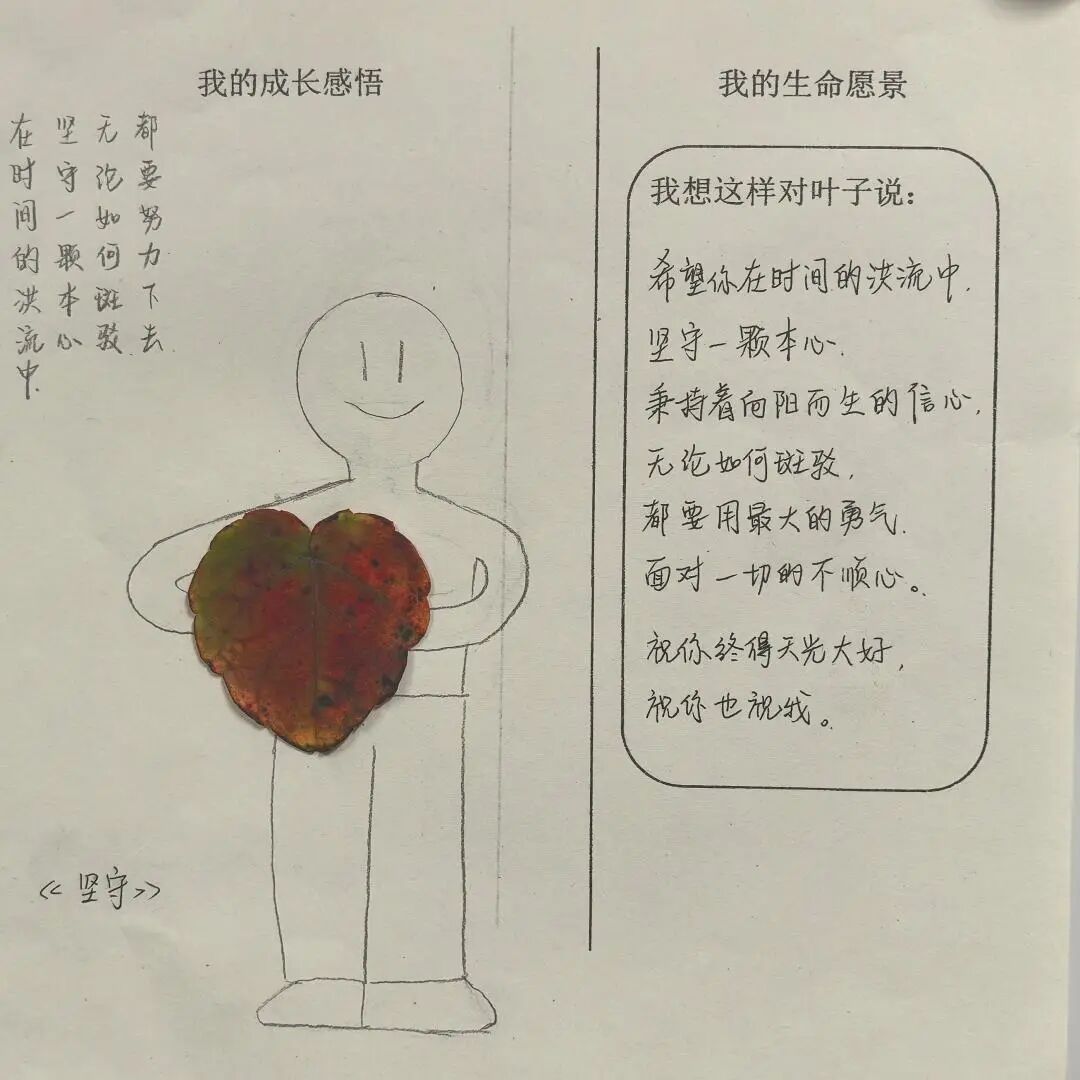 我的成长感悟
在时间的洪流中.
坚守一颗本心
无论如何斑驳
都要努力下去.
《坚守》
我的生命愿景
我想这样对叶子说：
希望你在时间的洪流中.
坚守一颗本心.
秉持着向阳而生的信心,
无论如何斑驳,
都要用最大的勇气.
面对一切的不顺心。
祝你终得天光大好,
祝你也祝我。